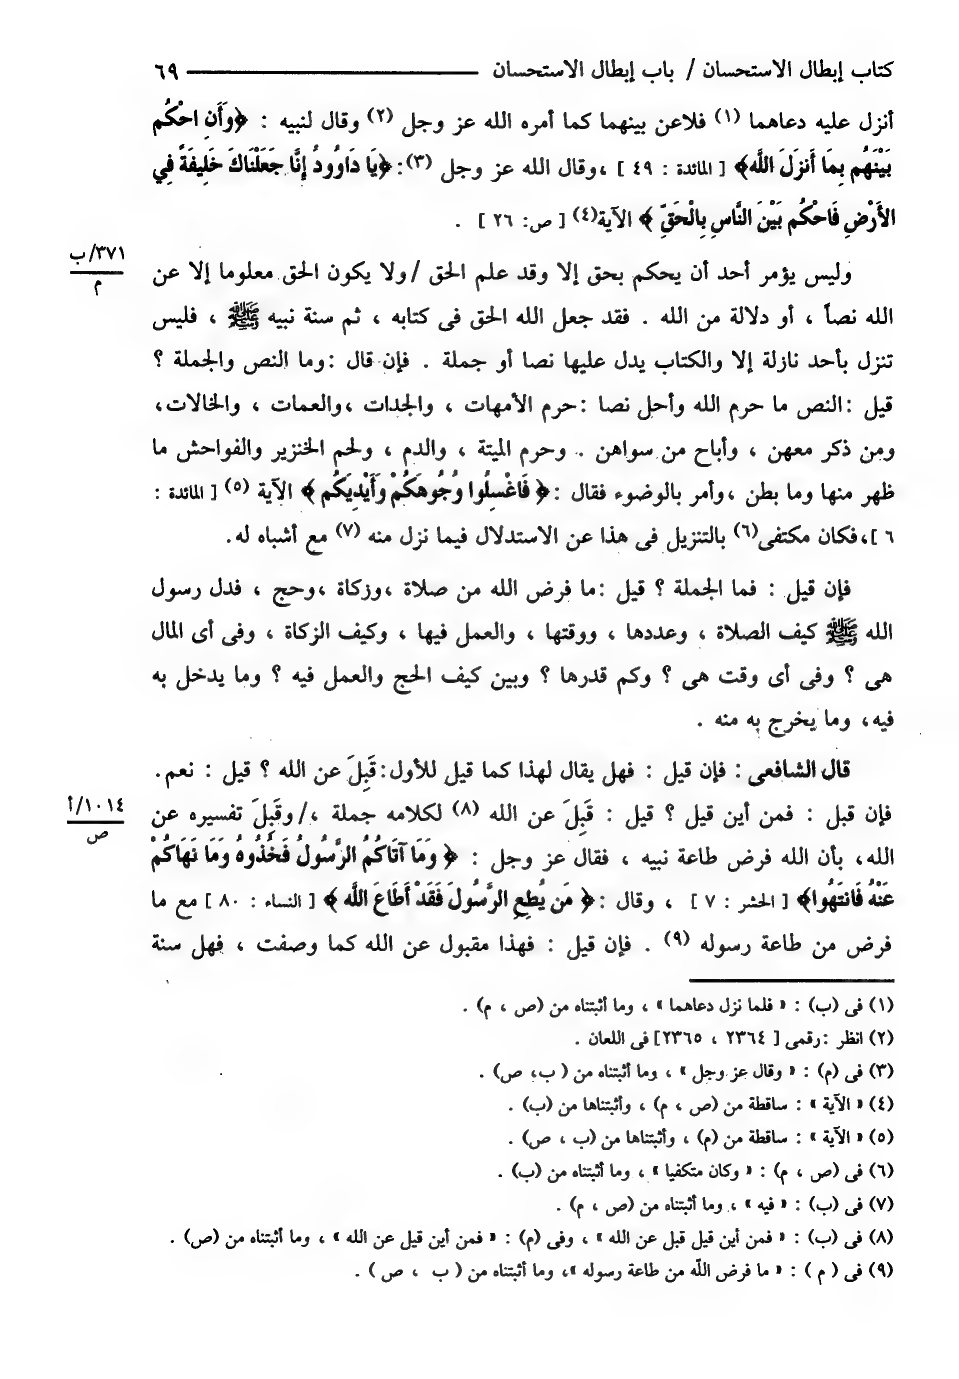 كتاب إبطال الاستحسان / باب إبطال الاستحسان ٦٩
أنزل عليه دعاهما (١) فلاعن بينهما كما أمره الله عز وجل (٢) وقال لنبيه : ﴿وَأَنِ احْكُم
بَيْنَهُم بِمَا أَنزَلَ اللَّه﴾ [ المائدة : ٤٩ ] ،وقال الله عز وجل (٣): ﴿يَا دَاوُودُ إِنَّا جَعَلْنَاكَ خَلِيفَةً فِي
الأَرْضِ فَاحْكُم بَيْنَ النَّاسِ بِالْحَقِّ ﴾ الآية(٤) [ ص: ٢٦ ] .
وليس يؤمر أحد أن يحكم بحق إلا وقد علم الحق /ولا يكون الحق معلوما إلا عن
٣٧١/ب
م
الله نصاً ، أو دلالة من الله . فقد جعل الله الحق فى كتابه ، ثم سنة نبيه ﷺ ، فليس
تنزل بأحد نازلة إلا والكتاب يدل عليها نصا أو جملة . فإن قال :وما النص والجملة ؟
قيل :النص ما حرم الله وأحل نصا :حرم الأمهات ، والجدات ،والعمات ، والخالات،
ومن ذكر معهن ، وأباح من سواهن . وحرم الميتة ، والدم ، ولحم الخنزير والفواحش ما
ظهر منها وما بطن ،وأمر بالوضوء فقال :﴿ فَاغْسِلُوا وُجُوهَكُمْ وَأَيْدِيَكُم ﴾ الآية (٥) [ المائدة :
٦ ]،فكان مكتفى(٦) بالتنزيل فى هذا عن الاستدلال فيما نزل منه (٧) مع أشباه له.
فإن قيل : فما الجملة ؟ قيل :ما فرض الله من صلاة ،وزكاة ،وحج ، فدل رسول
الله ﷺ كيف الصلاة ، وعددها ، ووقتها ، والعمل فيها ، وكيف الزكاة ، وفى أى المال
هى ؟ وفى أى وقت هى ؟ وكم قدرها ؟ وبين كيف الحج والعمل فيه ؟ وما يدخل به
فيه، وما يخرج به منه .
قال الشافعى : فإن قيل : فهل يقال لهذا كما قيل للأول:قَبِلَ عن الله ؟ قيل : نعم.
فإن قيل : فمن أين قيل ؟ قيل : قَبِلَ عن الله (٨) لكلامه جملة ،/وقَبِلَ تفسيره عن
١٠١٤/أ
ص
الله، بأن الله فرض طاعة نبيه ، فقال عز وجل : ﴿ وَمَا آتَاكُمُ الرَّسُولُ فَخُذُوهُ وَمَا نَهَاكُمْ
عَنْهُ فَانتَهُوا﴾ [ الحشر : ٧ ] ، وقال :﴿ مَن يُطِعِ الرَّسُولَ فَقَدْ أَطَاعَ اللَّه ﴾ [ النساء : ٨٠ ] مع ما
فرض من طاعة رسوله (٩) . فإن قيل : فهذا مقبول عن الله كما وصفت ، فهل سنة
(١) فى (ب) : « فلما نزل دعاهما » ، وما أثبتناه من (ص ، م) .
(٢) انظر :رقمى [ ٢٣٦٤ ، ٢٣٦٥] فى اللعان .
(٣) فى (م) : « وقال عز وجل » ، وما أثبتناه من ( ب، ص) .
(٤) « الآية » : ساقطة من (ص ، م) ، وأثبتناها من (ب) .
(٥) « الآية » : ساقطة من (م) ، وأثبتناها من (ب ، ص) .
(٦) فى (ص ، م) : « وكان متكفيا » ، وما أثبتناه من (ب) .
(٧) فى (ب) : « فيه » ، وما أثبتناه من (ص ، م) .
(٨) فى (ب) : « فمن أين قيل قبل عن الله » ، وفى (م) : « فمن أين قيل عن الله » ، وما أثبتناه من (ص) .
(٩) فى ( م ) : « ما فرض اللّه من طاعة رسوله »، وما أثبتناه من ( ب ، ص ) .